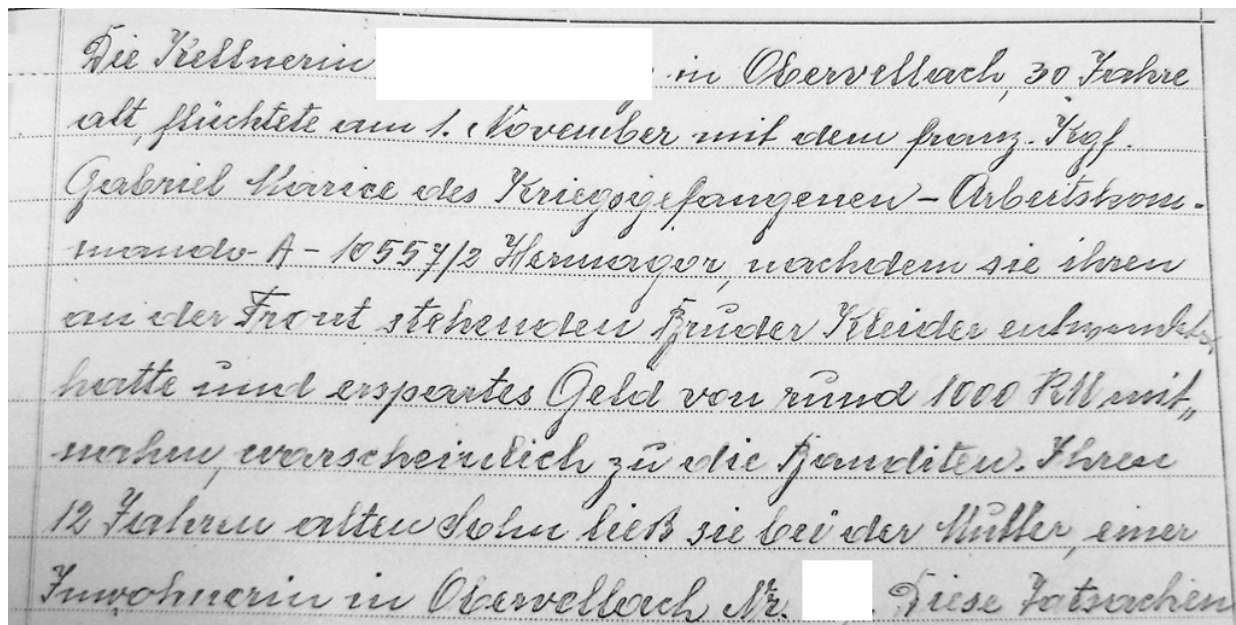 Die Kellnerin , in Obervellach, 30 Jahre
alt, flüchtete am 1. November mit dem franz. Kgf.
Gabriel Marice des Kriegsgefangenen – Arbeitskom-
mando A – 10557/2 Hermagor, nachdem sie ihren
an der Front stehenden Bruder Kleider entwendet
hatte und erspartes Geld von rund 1000 RM mit„
nahm, warscheinlich zu die Banditen. Ihren
12 Jahren alten Sohn ließ sie bei der Mutter, einer
Inwohnerin in Obervellach Nr. . Diese Tatsachen